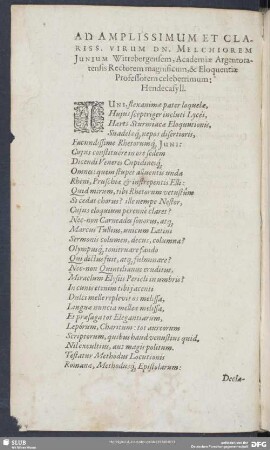 AD AMPLISSIMUM ET CLA-
RISS. VIRUM DN. MELCHIOREM
JUNIUM Wittebergensem, Academiæ Argentora-
tensis Rectorem magnificum, & Eloquentiæ
Professorem celeberrimum;
Hendecasyll.
JUNI, flexanimæ pater loquelæ,
Hujus sceptriger incluti Lycei,
Hæres Sturmiacæ Eloquutionis,
Suadelæq́, nepos disertioris,
Fucundissime Rhetorumq́, JUNI:
Cujus constituêre in ore sedem
Dicendi Veneres Cupidinesq́,
Omnes: quem stupet alluentis unda
Rheni, Bruschia & instrepentis Elli:
Quid mirum, tibi Rhetorum vetustûm
Si cedat chorus? ille nempe Nestor,
Cujus eloquium perenne claret?
Nec-non Carneadis sonorus, atq́,
Marcus Tullius, unicum Latini
Sermonis columen, decus, columna?
Olympusq́, tonitruare fando
Qui dictus fuit, atq́, fulminare?
Nec-non Quintilianus eruditus,
Miraclum Elysiis Pericli in umbris?
In cunis etenim tibi jacenti
Dulci melle replevit os melissa,
Lingua nuncia mellea melissa,
Et præsaga tot Elegantiarum,
Leporum, Charitum: tot aureorum
Scriptorum, quibus haud venustius quid,
Nil excultius, aut magis politum.
Testatur Methodus Locutionis
Romanæ, Methodusq́, Epistolarum:
Decla-
SLUB
DFG